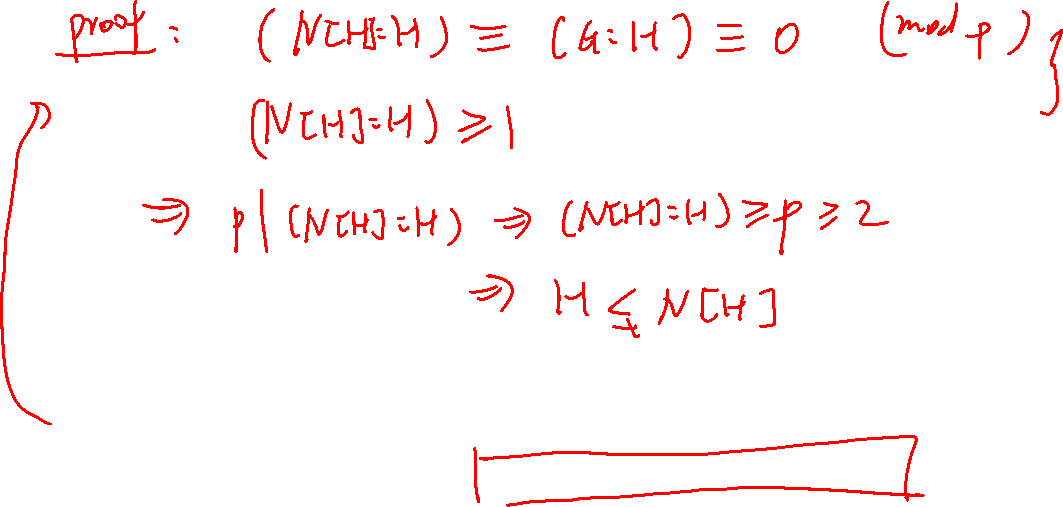 proof : (N[H]:H) ≡ (G:H) ≡ 0 (mod p) }
(N[H]:H) ≥ 1
⇒ p | (N[H]:H) ⇒ (N[H]:H) ≥ p ≥ 2
⇒ H ≨ N[H]